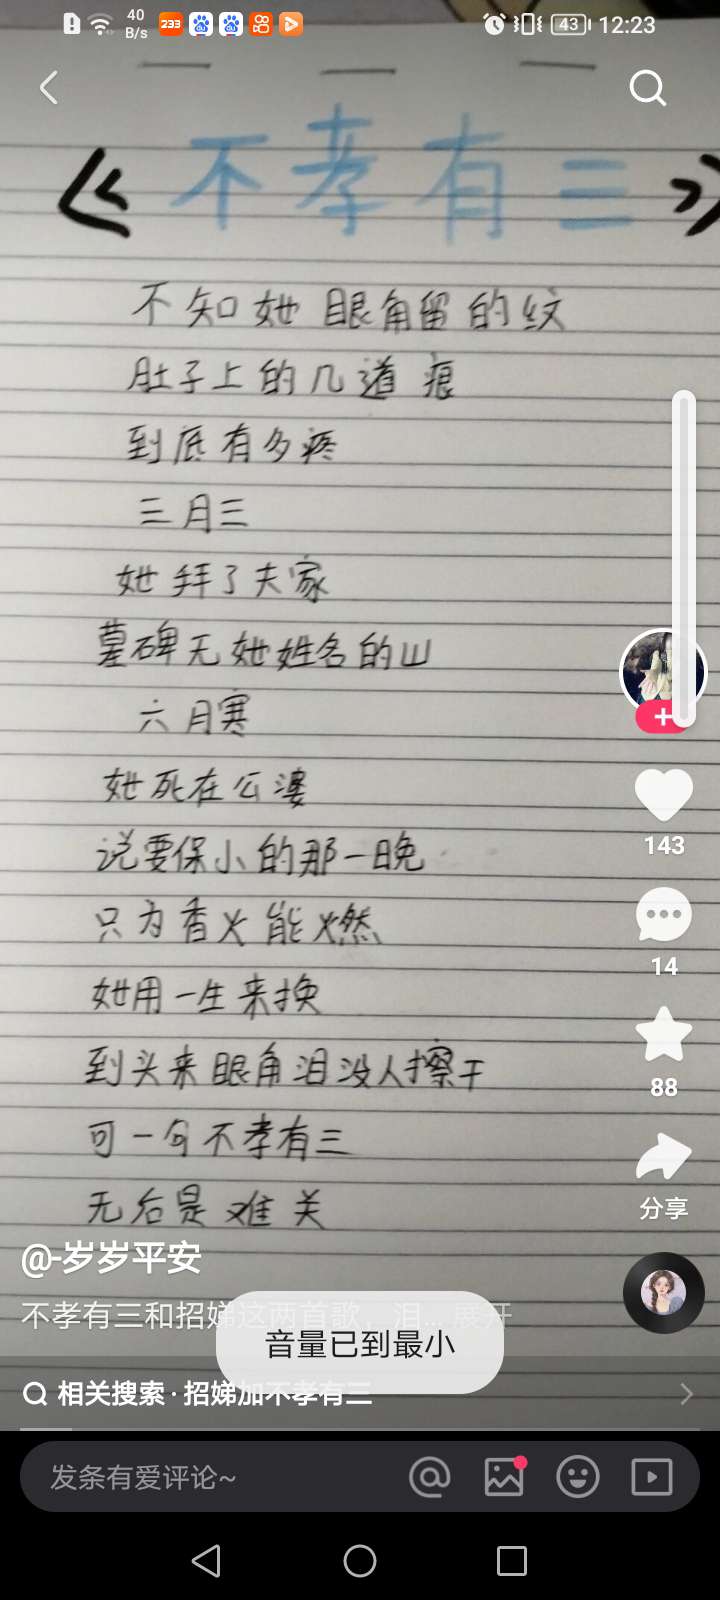 40
B/s
233
43
12:23
《不孝有三》
不知她眼角留的纹
肚子上的几道痕
到底有多疼
三月三
她拜了夫家
墓碑无她姓名的山
六月寒
她死在公婆
说要保小的那一晚
只为香火能燃
她用一生来换
到头来眼角泪没人擦干
可一句不孝有三
无后是难关
143
14
88
分享
@-岁岁平安
不孝有三和招娣这两首歌，泪... 展开
音量已到最小
相关搜索·招娣加不孝有三
发条有爱评论~